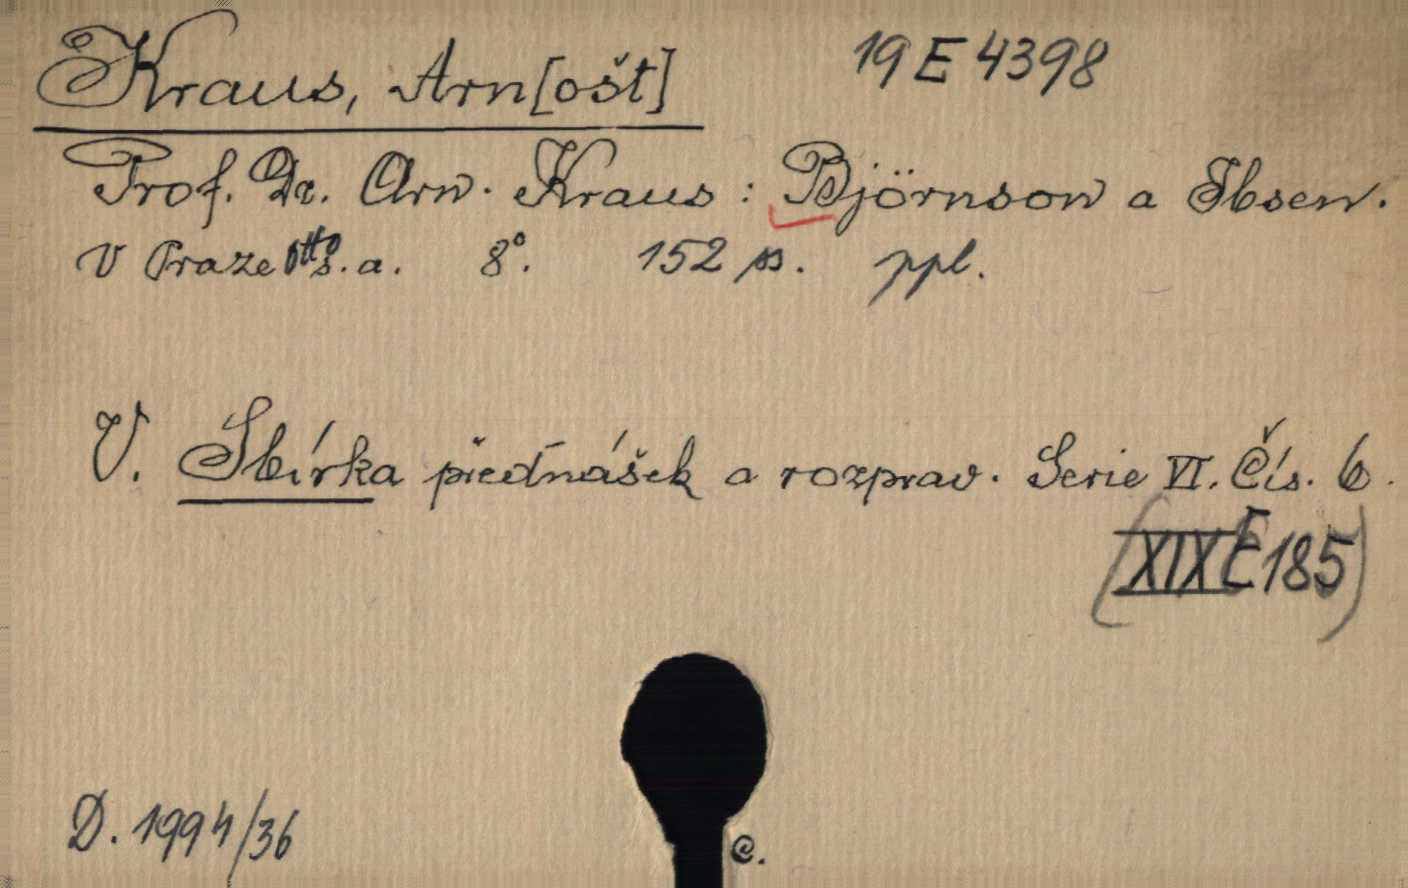 Kraus, Arn[ošt] 19 E 4398
Prof. Dr. Arn. Kraus: Björnson a Ibsen.
V Praze Otto s. a. 8°. 152 ss. ppl.
V. Sbírka přednášek a rozprav. Serie VI. Čís. 6.
(XIX E 185)
D. 1994/36
C.